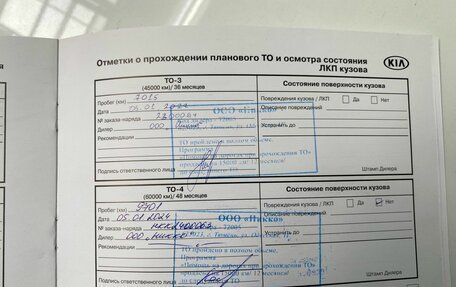 Отметки о прохождении планового ТО и осмотра состояния
ЛКП кузова
KIA
ТО-3
(45000 км)/ 36 месяцев
Состояние поверхности кузова
Пробег (км) 7015
Повреждения кузова / ЛКП Да Нет
Дата 05.01.2022
Описание повреждений
№ заказа-наряда
Дилер ООО
Устранить до
Рекомендации
ООО «Никко»
ТО пройден в полном объеме.
Программа
«Помощь на дорогах при прохождении ТО»
Подпись ответственного лица
Штамп Дилера
ТО-4
(60000 км)/ 48 месяцев
Состояние поверхности кузова
Пробег (км)
Повреждения кузова / ЛКП Да Нет
Дата 05.01.2024
Описание повреждений
№ заказа-наряда
Дилер ООО "Никко"
Устранить до
Рекомендации
ООО «Никко»
ТО пройдено в полном объеме.
Программа
«Помощь на дорогах при прохождении ТО
Подпись ответственного лица
Штамп Дилера